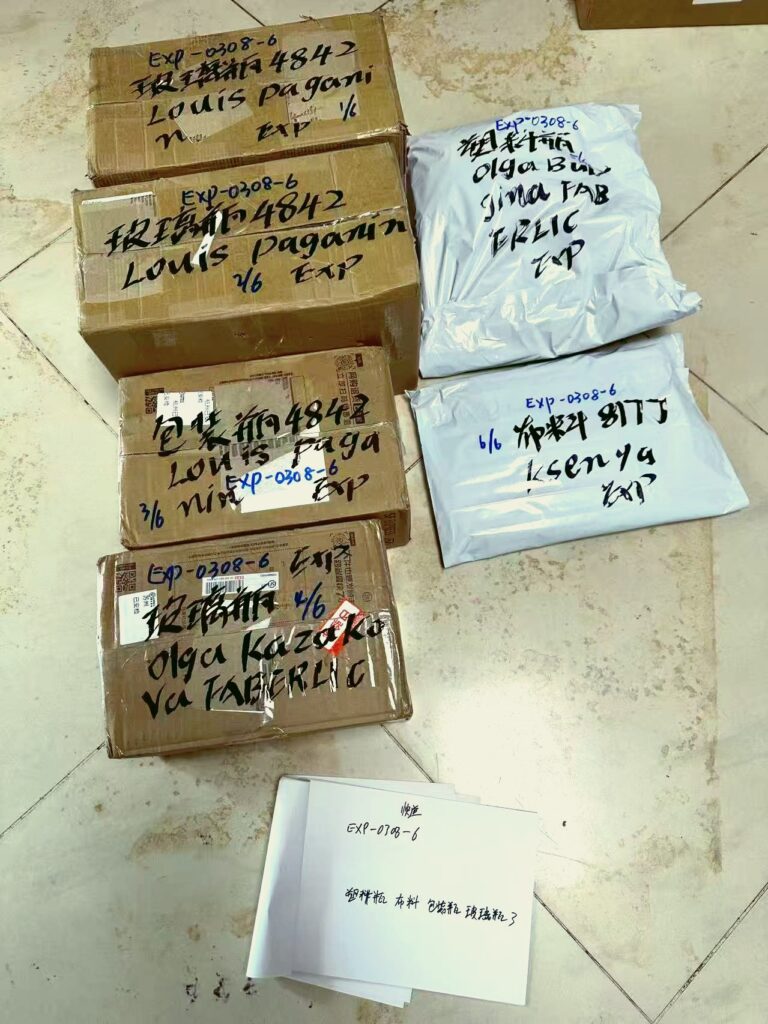 Exp-0308-6
玻璃瓶4842
Louis pagani
n Exp 1/6
Exp-0308-6
玻璃瓶4842
Louis paganin
2/6 Exp
包装瓶4842
Louis paga
nin Exp-0308-6
3/6 Exp
Exp-0308-6 Exp
玻璃瓶 4/6
Olga Kazako
va FABERLIC
Exp-0308-6
塑料瓶
Olga Bul
gina FAB
ERLIC
Exp
Exp-0308-6
6/6 布料
Ksenya
Exp
EXP-0308-6
塑料瓶 布料 包装瓶 玻璃瓶3